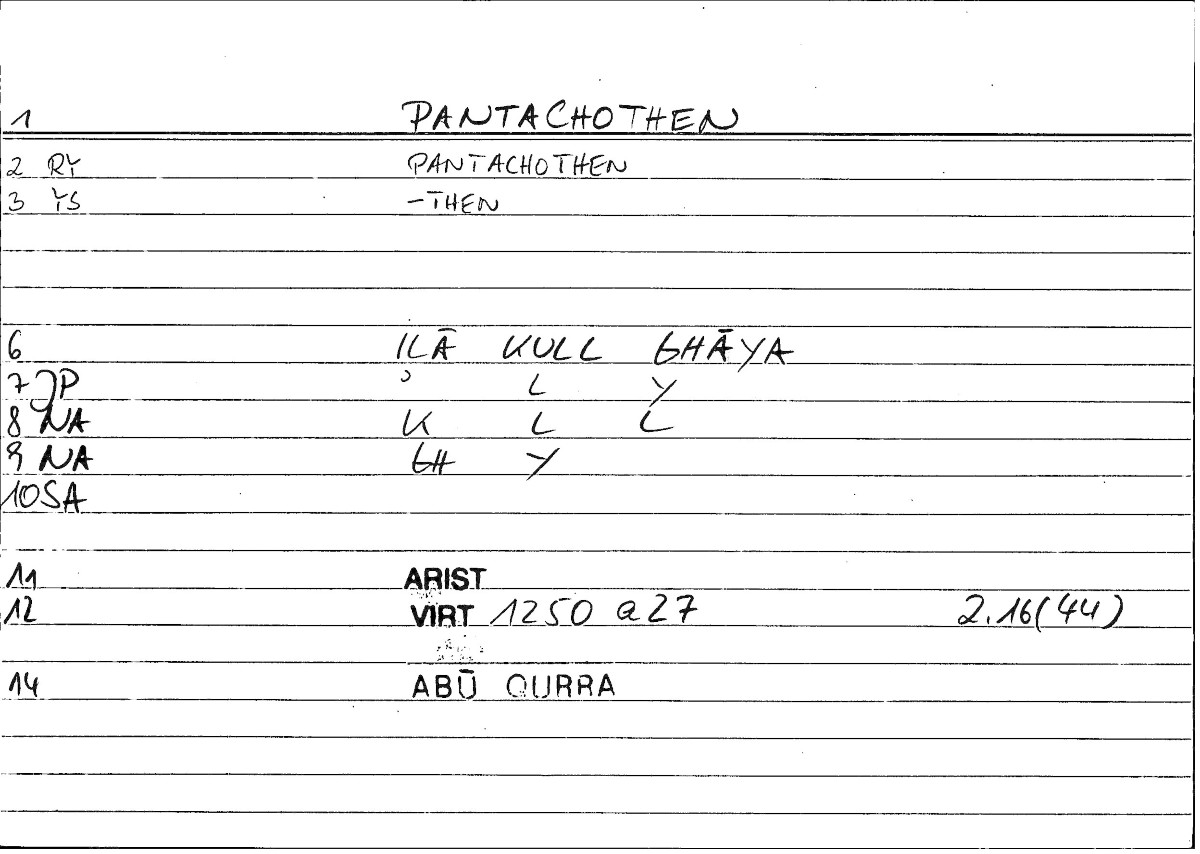 1 PANTACHOTHEN
2 RY PANTACHOTHEN
3 YS -THEN
6 ILĀ KULL GHĀYA
7 JP ʾ L Y
8 NA K L L
9 NA GH Y
10 SA
11 ARIST
12 VIRT 1250 a 27 2.16(44)
14 ABŪ QURRA